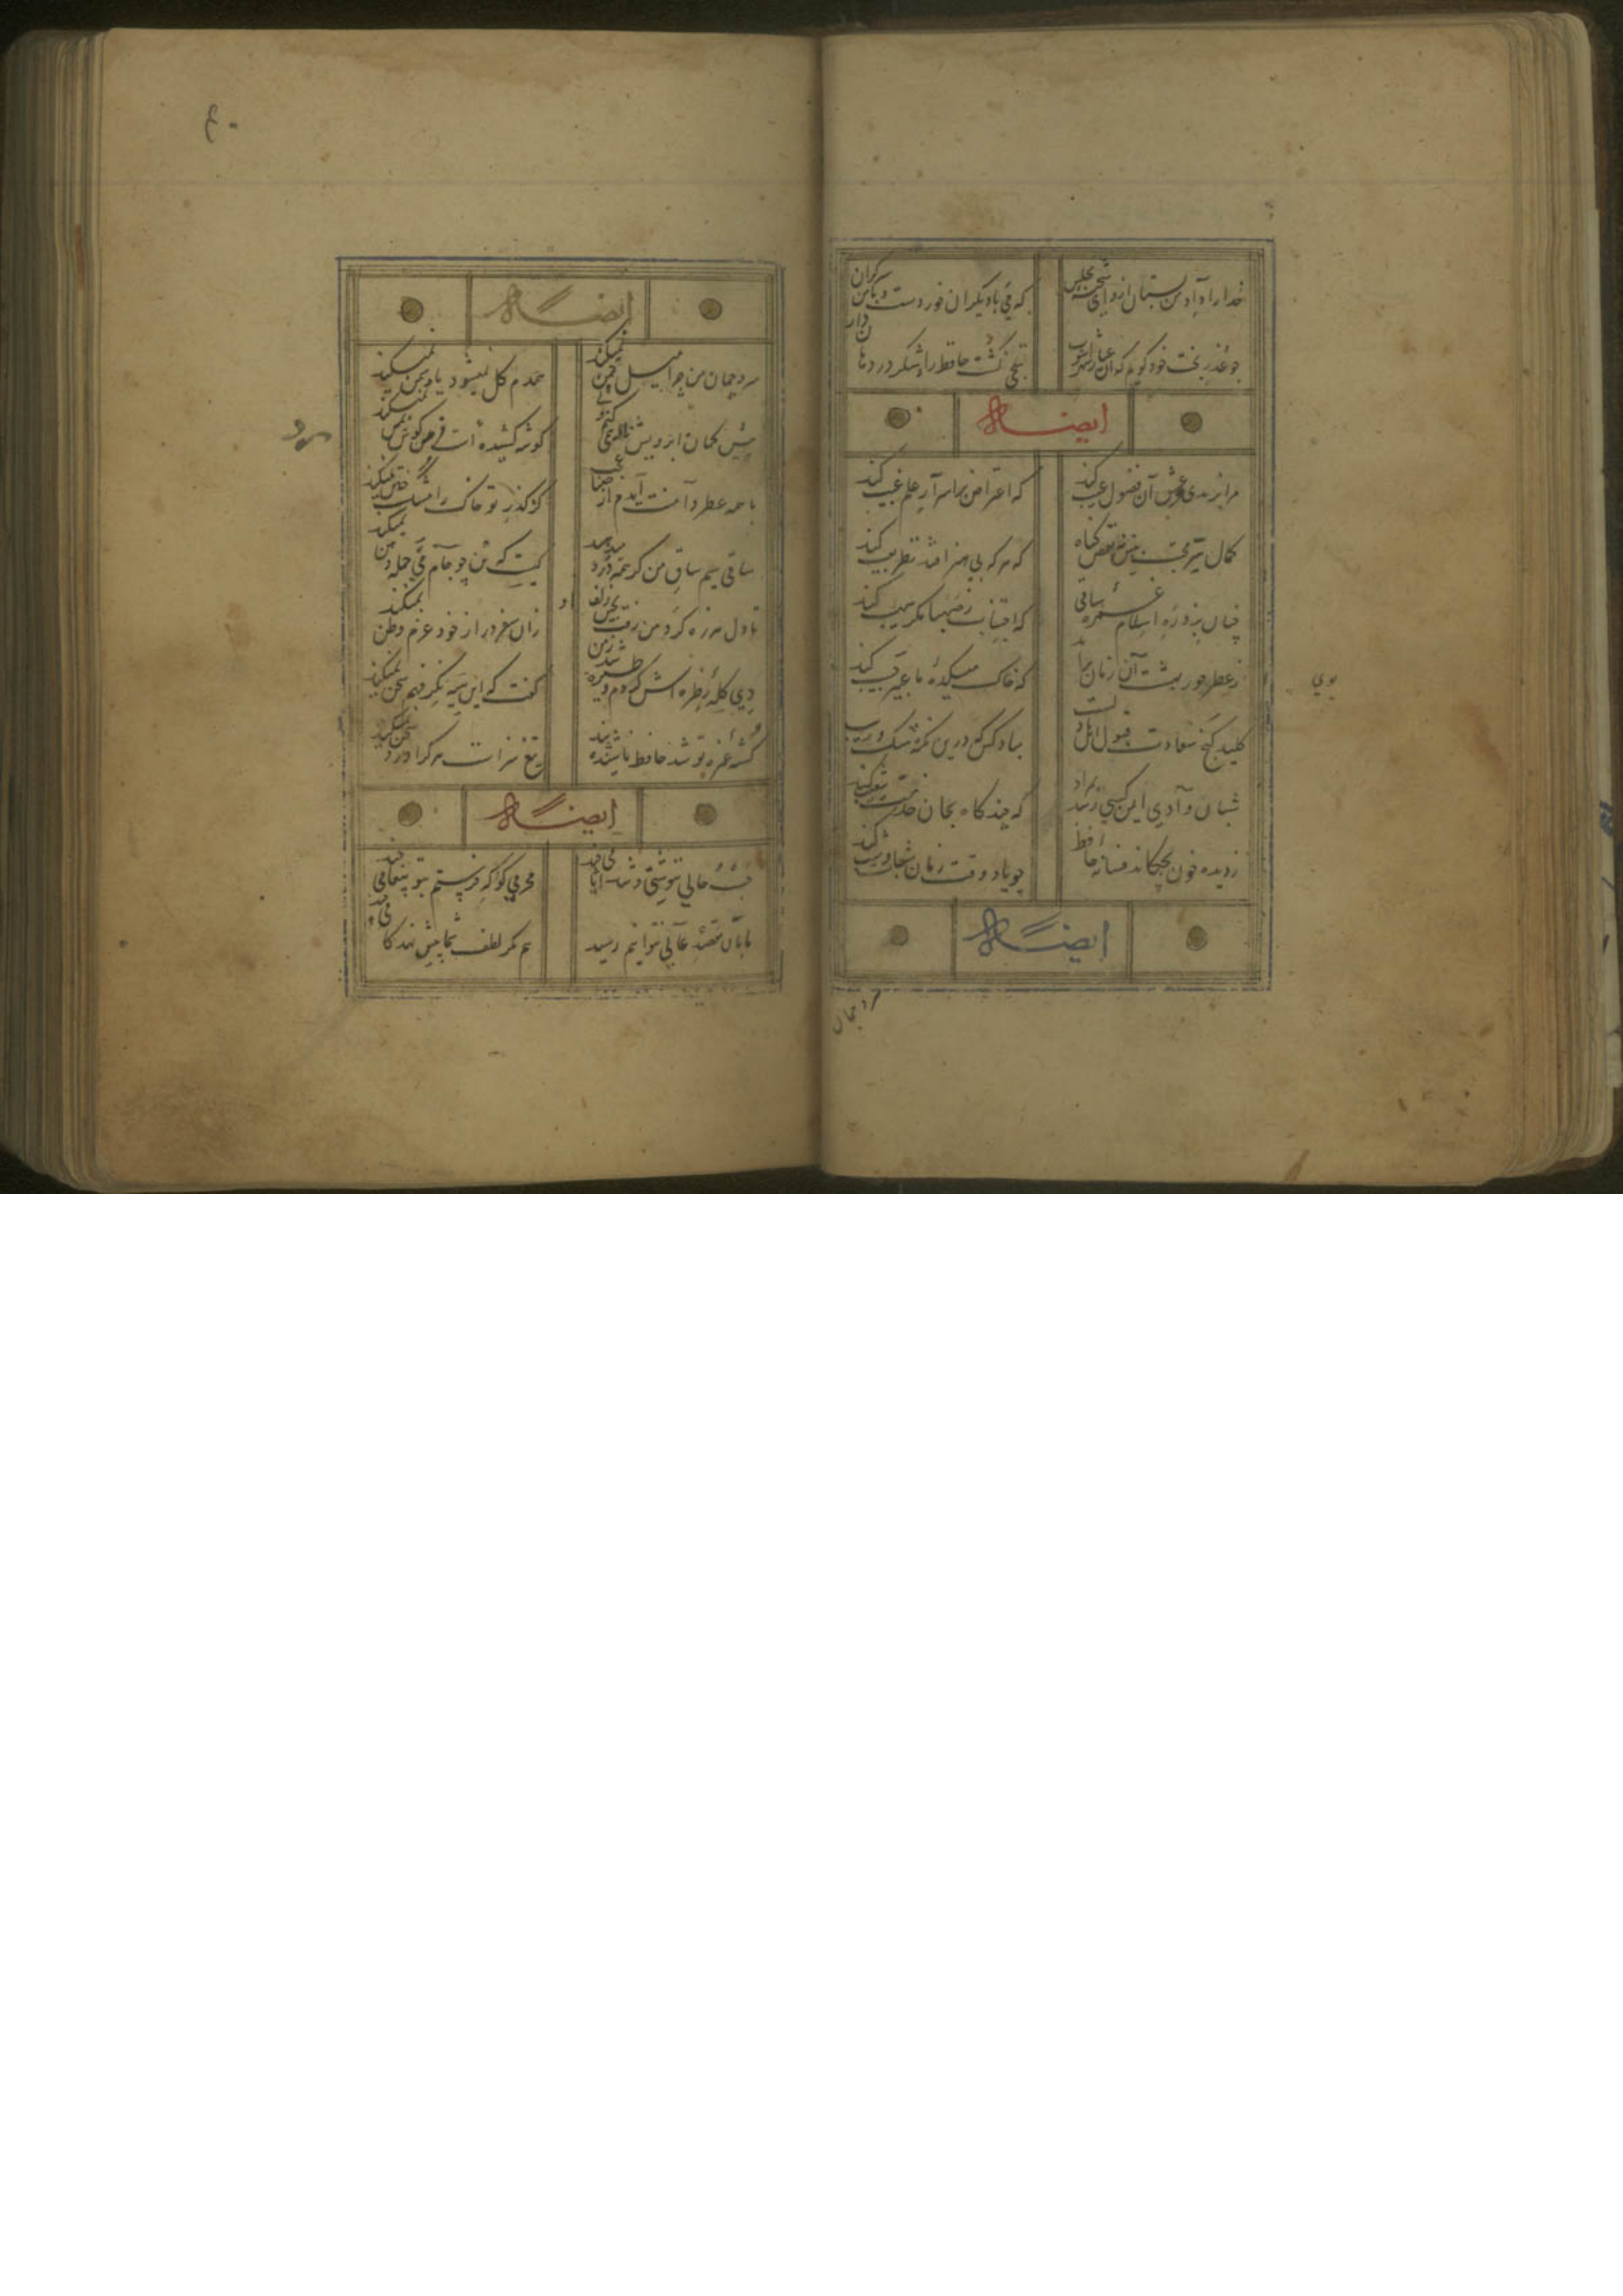 خدارا داد من بستان ازو ای شحنه مجلس
که می با دیگران خوردست و با من سرکران دارد
چو عذر بخت خود کویم که آن عیار شهرآشوب
بتلخی کشت حافظ را و شکر در دهان
ایضاله
مرا برندی و عشق آن فضول عیب کند
که اعتراض بر اسرار علم غیب کند
کمال سر محبت ببین نه نقص کناه
که هر که بی هنر افتد نظر بعیب کند
چنان بزد ره اسلام غمزه ساقی
که اجتناب ز صهبا مکر صهیب کند
ز عطر حور بهشت آن زمان برآید
که خاک میکده ما عبیر جیب کند
کلید کنج سعادت قبول اهل دلست
مباد کس که درین نکته شک و ریب
شبان وادی ایمن کهی رسد بمراد
که چند کاه بجان خدمت شعیب کند
ز دیده خون بچکاند فسانه حافظ
چو یاد وقت زمان شباب و شیب کند
ایضاله
سرو چمان
بوی
۴۰
ایضاله
سرو چمان من چرا میل چمن نمیکند
همدم کل نمیشود یاد سمن نمیکند
پیش کمان ابرویش لابه همی کنم ولی
کوشه کشیده است از من کوش نمیکند
با همه عطر دامنت آیدم از صبا عجب
کز کذر تو خاک را مشک ختن نمیکند
ساقی سیم ساق من کر همه درد میدهد
کیست که تن چو جام می جمله دهن نمیکند
تا دل هرزه کرد من رفت بچین زلف او
زان سفر دراز خود عزم وطن نمیکند
دی کله ز طره اش کردم و از سر
کفت که این سیه کج فهم سخن نمیکند
کشته غمزه تو شد حافظ ناشنیده پند
تیغ سزاست هر کرا درد سخن نمیکند
سرو
ایضاله
حسب حالی ننوشتی و شد ایامی چند
محرمی کو که فرستم بتو پیغامی چند
ما بدان مقصد عالی نتوانیم رسید
هم مکر لطف شما پیش نهد کامی چند